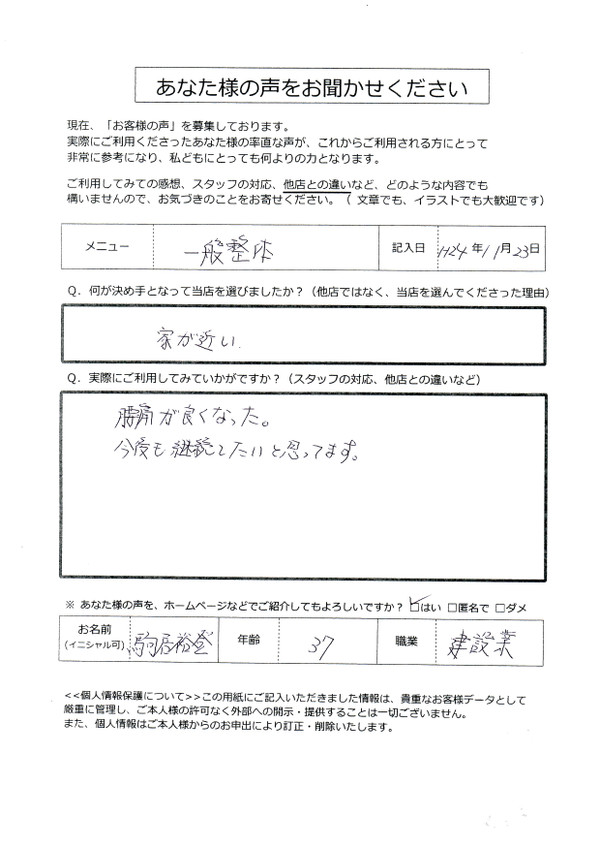 あなた様の声をお聞かせください
現在、「お客様の声」を募集しております。
実際にご利用くださったあなた様の率直な声が、これからご利用される方にとって
非常に参考になり、私どもにとっても何よりの力となります。
ご利用してみての感想、スタッフの対応、他店との違いなど、どのような内容でも
構いませんので、お気づきのことをお寄せください。（ 文章でも、イラストでも大歓迎です）
メニュー 一般整体 記入日 H24年11月23日
Q. 何が決め手となって当店を選びましたか？（他店ではなく、当店を選んでくださった理由）
家が近い.
Q. 実際にご利用してみていかがですか？（スタッフの対応、他店との違いなど）
腰痛が良くなった。
今後も継続したいと思ってます。
※ あなた様の声を、ホームページなどでご紹介してもよろしいですか？ ☑はい □匿名で □ダメ
お名前 年齢 37 職業 建設業
(イニシャル可)
<<個人情報保護について>>この用紙にご記入いただきました情報は、貴重なお客様データとして
厳重に管理し、ご本人様の許可なく外部への開示・提供することは一切ございません。
また、個人情報はご本人様からのお申出により訂正・削除いたします。